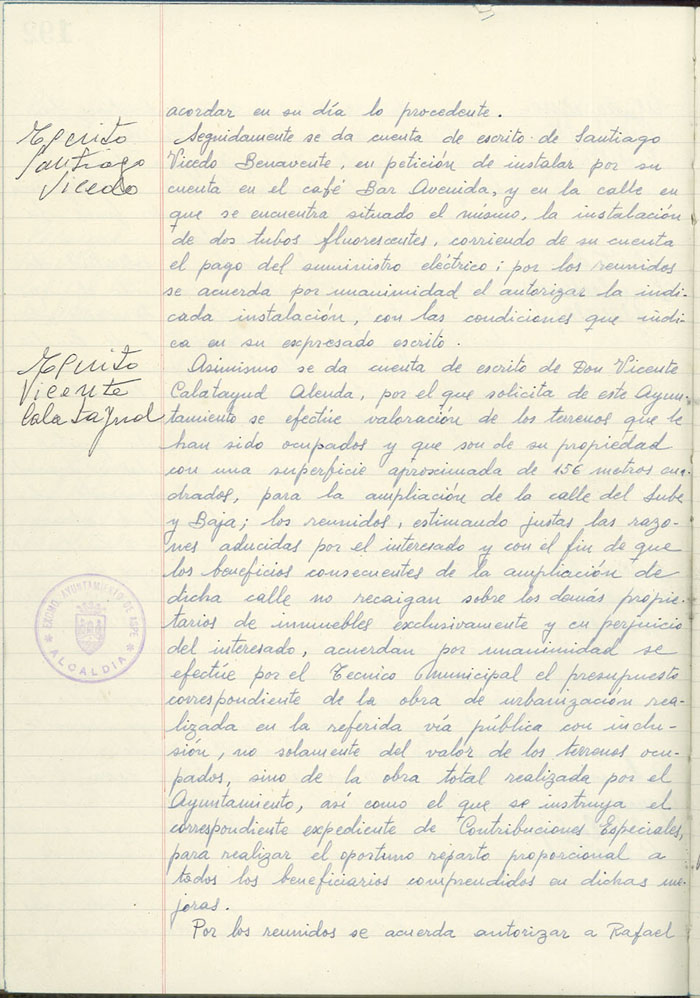 acordar en su día lo procedente.
Escrito
Santiago
Vicedo
Seguidamente se da cuenta de escrito de Santiago
Vicedo Benavente, en petición de instalar por su
cuenta en el café Bar Avenida, y en la calle en
que se encuentra situado el mismo, la instalación
de dos tubos fluorescentes, corriendo de su cuenta
el pago del suministro eléctrico; por los reunidos
se acuerda por unanimidad el autorizar la indi-
cada instalación, con las condiciones que indi-
ca en su expresado escrito.
Escrito
Vicente
Calatayud
Asimismo se da cuenta de escrito de Don Vicente
Calatayud Alenda, por el que solicita de este Ayun-
tamiento se efectúe valoración de los terrenos que le
han sido ocupados y que son de su propiedad
con una superficie aproximada de 156 metros cua-
drados, para la ampliación de la calle del Sube
y Baja; los reunidos, estimando justas las razo-
nes aducidas por el interesado y con el fin de que
los beneficios consecuentes de la ampliación de
dicha calle no recaigan sobre los demás propie-
tarios de inmuebles exclusivamente y en perjuicio
del interesado, acuerdan por unanimidad se
efectúe por el Tecnico Municipal el presupuesto
correspondiente de la obra de urbanización rea-
lizada en la referida vía pública con inclu-
sión, no solamente del valor de los terrenos ocu-
pados, sino de la obra total realizada por el
Ayuntamiento, así como el que se instruya el
correspondiente expediente de Contribuciones Especiales,
para realizar el oportuno reparto proporcional a
todos los beneficiarios comprendidos en dichas me-
joras.
Por los reunidos se acuerda autorizar a Rafael
EXCMO. AYUNTAMIENTO DE ASPE
ALCALDIA
192